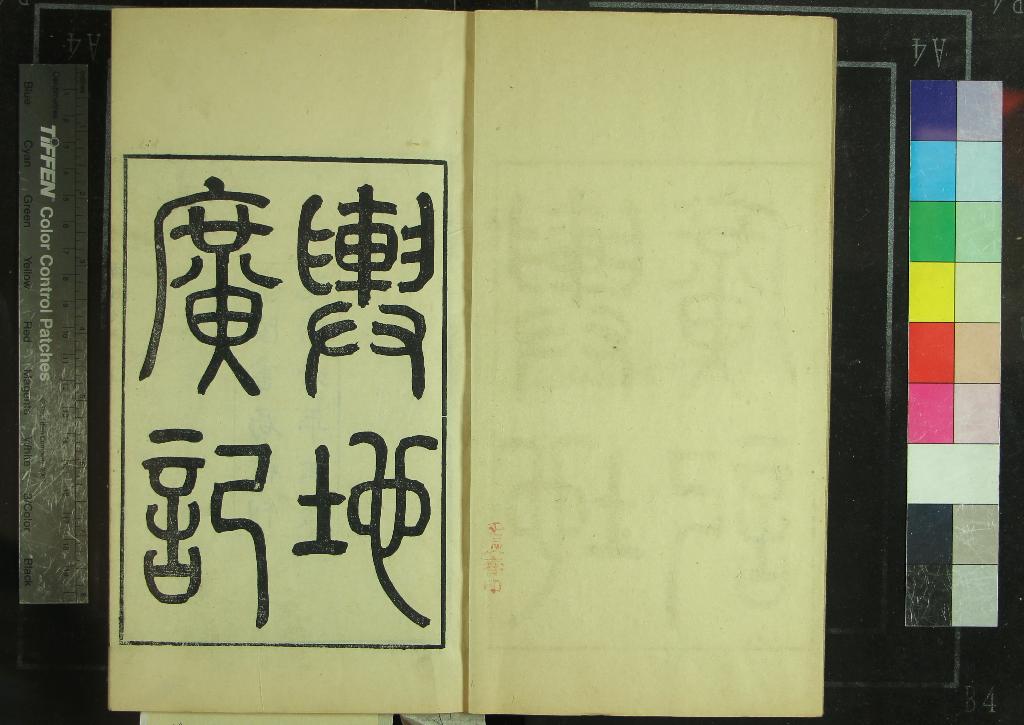 輿地
廣記
TIFFEN Color Control Patches
Blue Cyan Green Yellow Red Magenta White 3/Color Black
A4
A4
B4